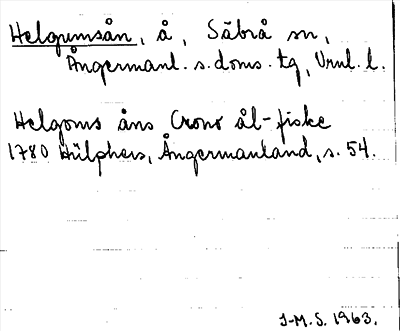 Helgumsån, å, Säbrå sn,
Ångermanl. s. doms. tg, Vrnl. l.
Helgoms åns Crono ål-fiske
1780 Hülphers, Ångermanland, s. 54.
J-M. S. 1963.